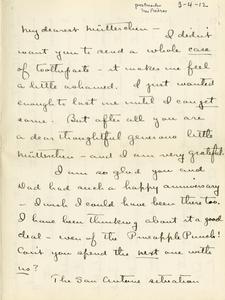 postmarked 3-4-12
San Pedro
My dearest Mütterchen - I didn't
want you to send a whole case
of toothpaste - it makes me feel
a little ashamed. I just wanted
enough to last me until I can get
some. But after all you are
a dear thoughtful generous little
Mütterchen - and I am very grateful.
I am so glad you and
Dad had such a happy anniversary
- I wish I could have been there too.
I have been thinking about it a good
deal - even of the Pineapple Punch!
Can't you spend the next one with
us?
The San Antone situation